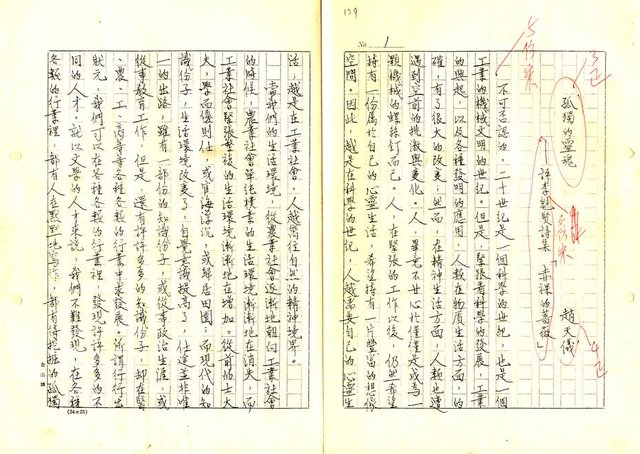 129
No. 1
5份米
3正
孤獨的靈魂
——評李魁賢詩集「赤裸的薔薇」
趙天儀
不可否認的,二十世紀是一個科學的世紀,也是一個
工業的機械文明的世紀。但是,緊張著科學的發展,工業
的興起,以及各種發明的應用,人類在物質生活方面,的
確,有了很大的改革;然而,在精神生活方面,人類也遭
遇到空前的挑激與變化。人,畢竟不甘心於僅僅是成為一
顆機械的螺絲釘而已。人,在緊張的工作以後,仍然希望
持有一份屬於自己的心靈生活,希望持有一片豐富的想像
空間。因此,越是在科學的世紀,人越需要自己的心靈生
活,越是在工業社會,人越嚮往自然的精神境界。
當我們的生活環境,從農業社會逐漸地朝向工業社會
的時候,農業社會單純樸素的生活環境漸漸地在消失,而
工業社會緊張繁複的生活環境漸漸地在增加。從前的士大
夫,學而優則仕,或宦海浮沉,或歸居田園;而現代的知
識份子,生活環境改變了,自覺意識提高了,仕途並非唯
一的出路,雖有一部份的知識份子,或從事政治生涯,或
從事教育工作,但是,還有許許多多的知識份子,却在醫
、農、工、商等等各種各類的行業中求發展。所謂行行出
狀元,我們可以在各種各類的行業裡,發現許許多多的不
同的人才。就以文學的人才來說,我們不難發現,在各種
各類的行業裡,都有人在默默地寫作,都有待挖掘的孤獨
金山牌
(24×25)